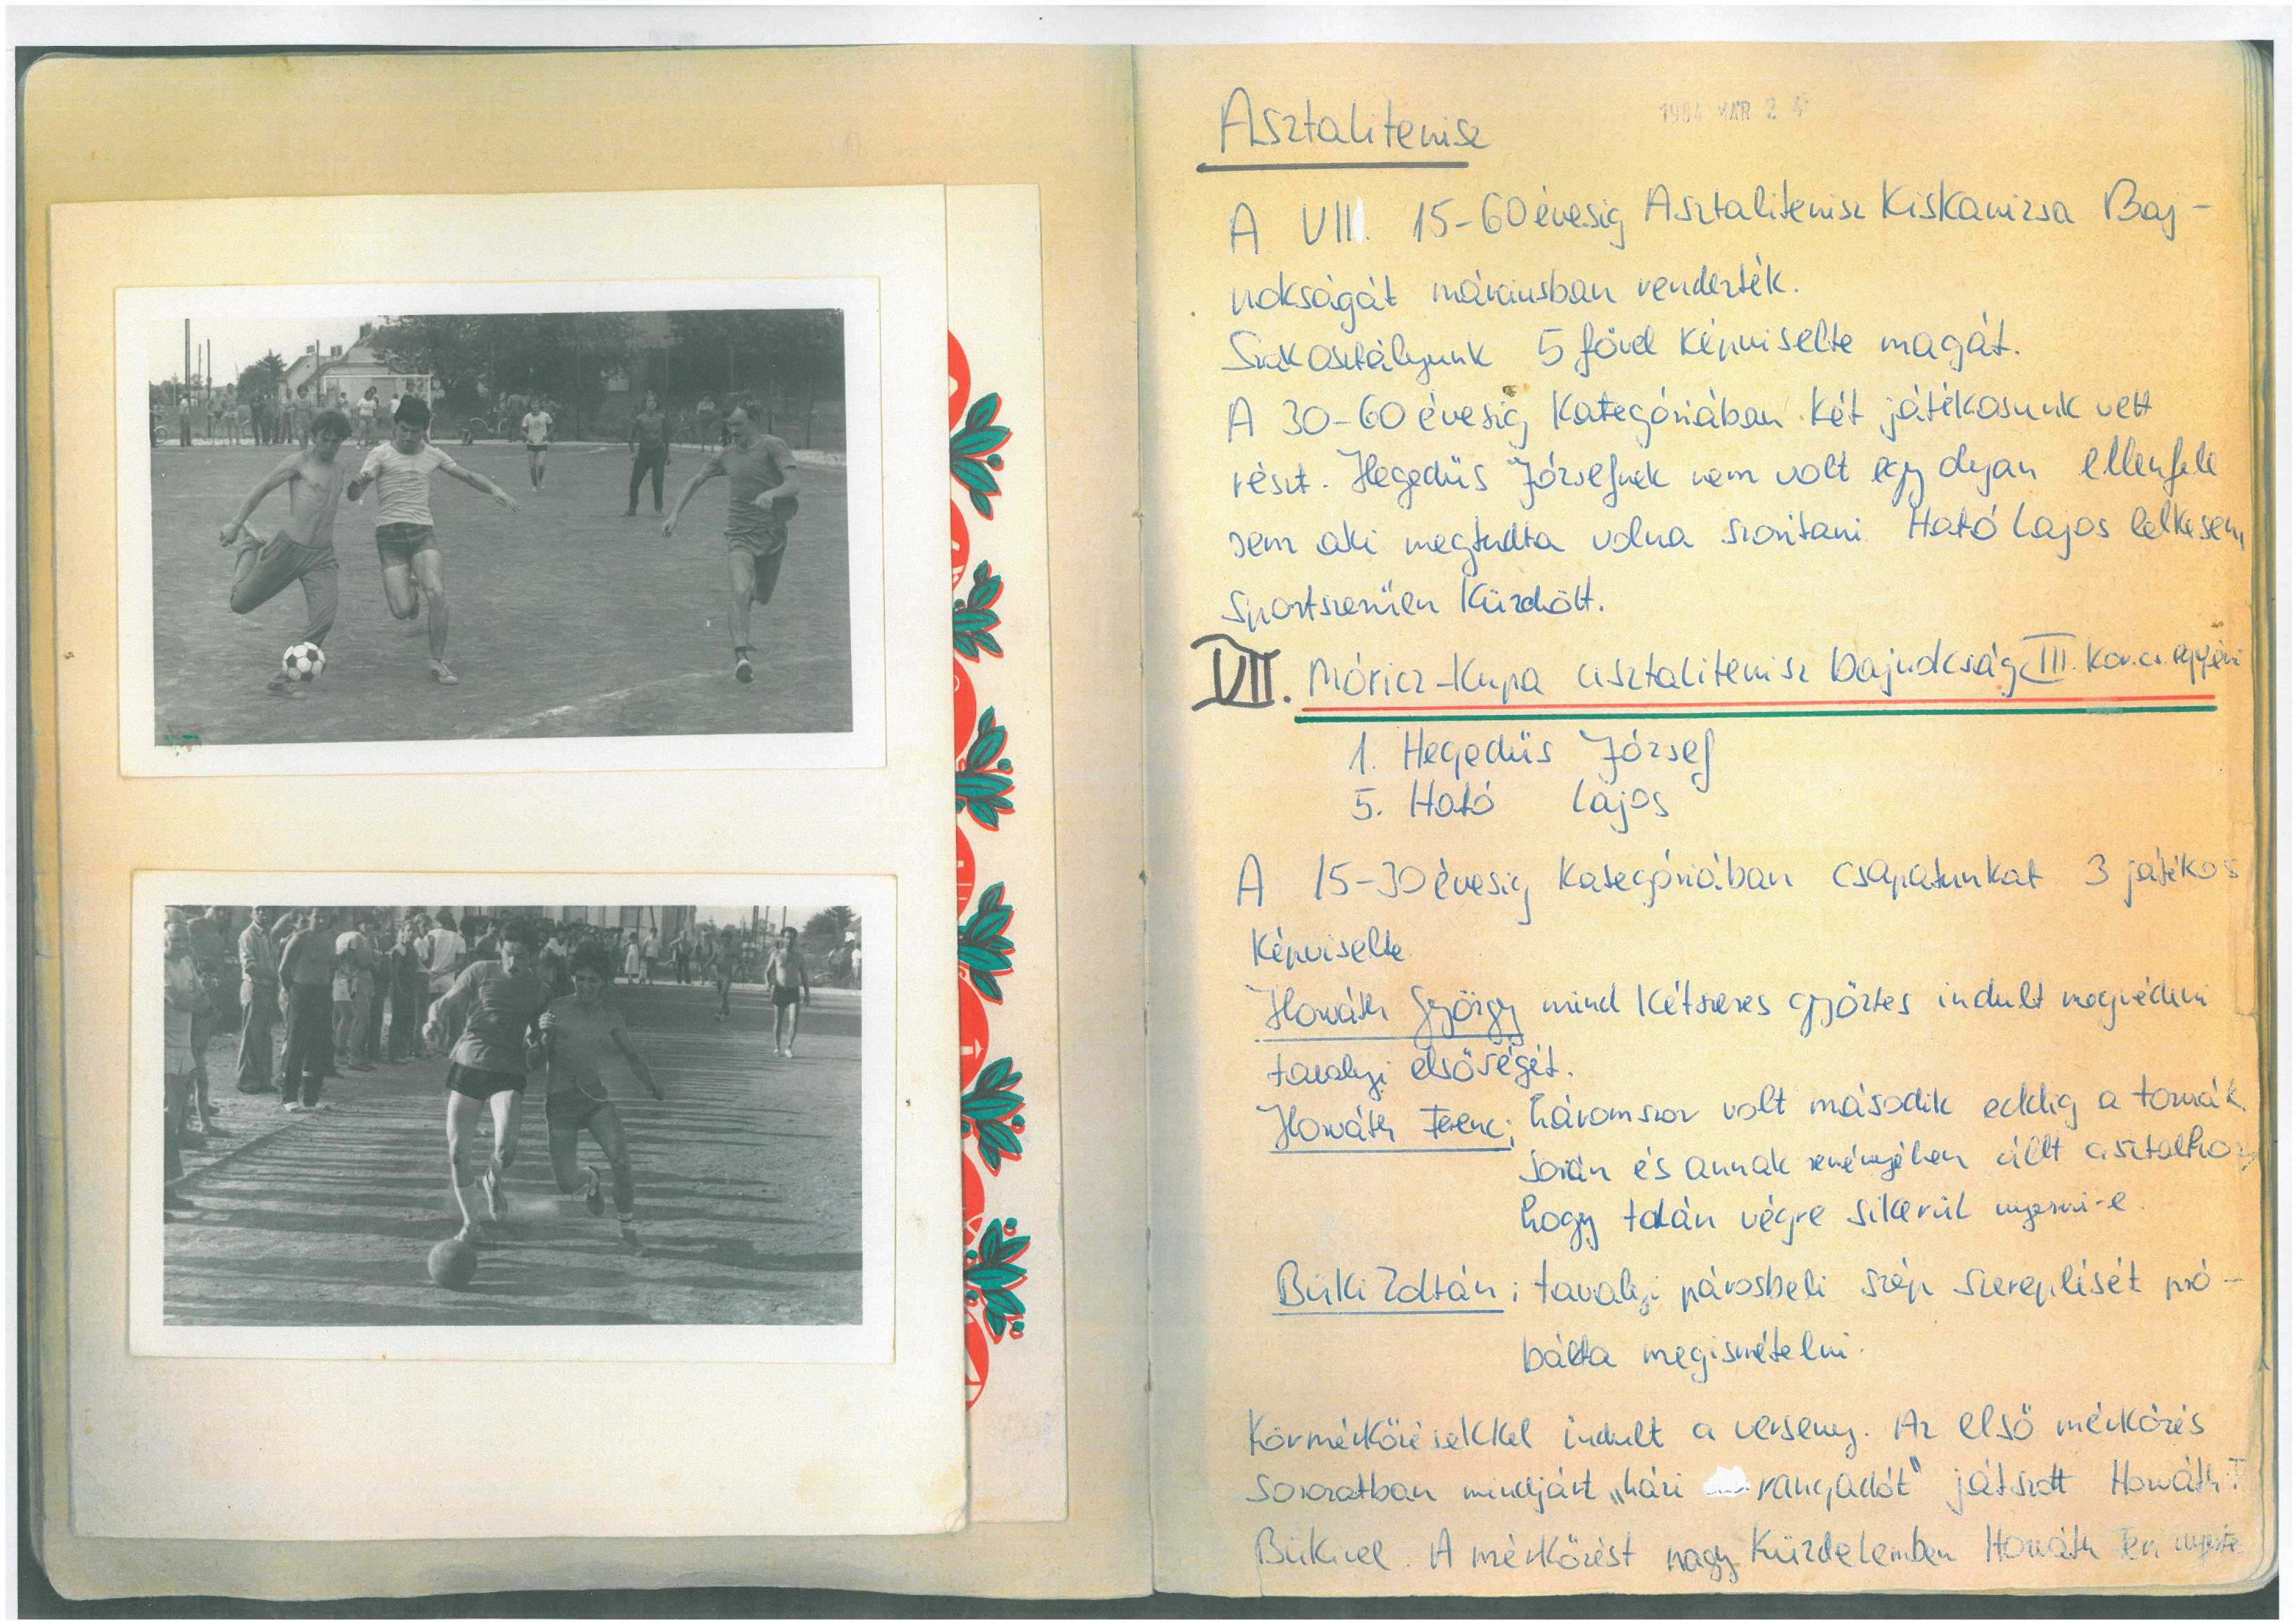 Asztalitenisz
1984 MÁR 2
A VII. 15-60 évesig Asztalitenisz Kiskanizsa Baj-
nokságát márciusban rendezték.
Szakosztályunk 5 fővel képviselte magát.
A 30-60 évesig kategóriában két játékosunk vett
részt. Hegedüs Józsefnek nem volt egy olyan ellenfele
sem aki megtudta volna szoritani. Ható Lajos lelkesen,
sportszerüen küzdött.
VII. Móricz-Kupa asztalitenisz bajnokság III. kor.cs. egyéni
1. Hegedüs József
5. Ható Lajos
A 15-30 évesig kategóriában csapatunkat 3 játékos
képviselte
Horváth György mind kétszeres győztes indult megvédeni
tavalyi elsőségét.
Horváth Ferenc; háromszor volt második eddig a tornák
során és annak reményében állt asztalhoz
hogy talán végre sikerül nyerni-e.
Büki Zoltán; tavalyi párosbeli szép szereplését pró-
bálta megismételni.
Körmérkőzésekkel indult a verseny. Az első mérkőzés
sorozatban mindjárt „házi rangadót" játszott Horváth F
Bükivel. A mérkőzést nagy küzdelemben Horváth Feri nyerte